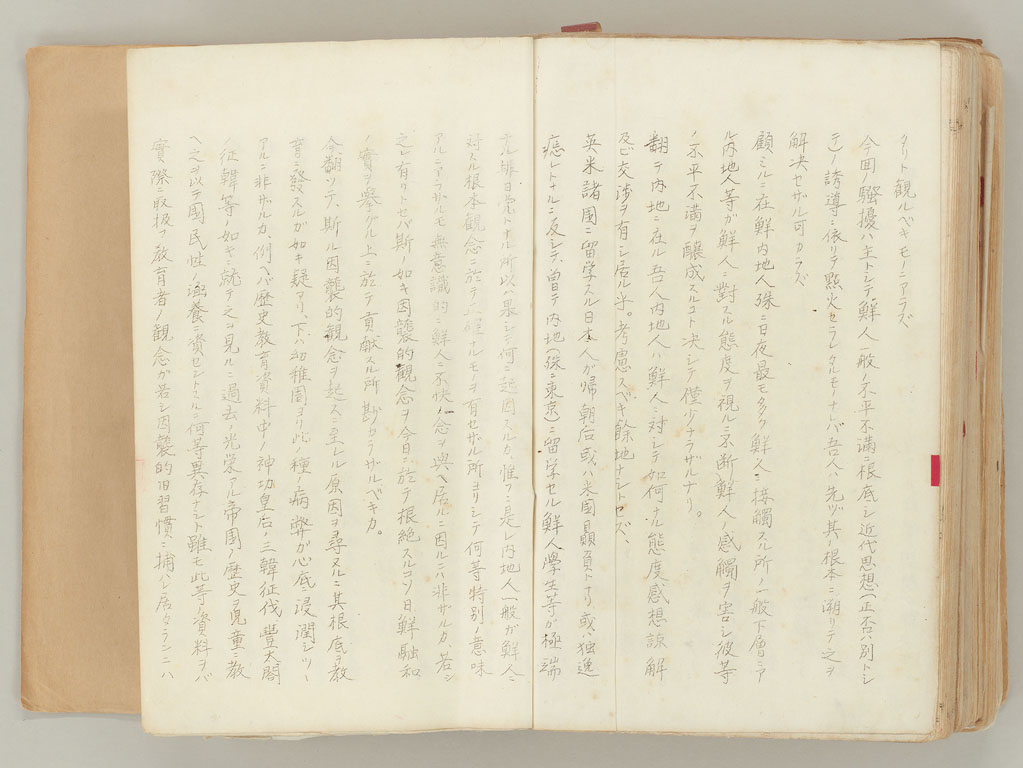 タリト観ルベキモノニアラズ
今回ノ騒擾ハ主トシテ鮮人一般ノ不平不満ニ根底シ近代思想(正否ハ別トシ
テ)ノ誘導ニ依リテ點火セラレタルモノナレバ吾人ハ先ヅ其ノ根本ニ溯リテ之ヲ
解决セザル可カラズ
顧ミルニ在鮮内地人殊ニ日夜最モ多ク鮮人ニ接觸スル所ノ一般下層ニア
ル内地人等ガ鮮人ニ對スル態度ヲ視ルニ不断鮮人ノ感觸ヲ害シ彼等
ノ不平不満ヲ醸成スルコト决シテ僅少ナラザルナリ。
翻テ内地ニ在ル吾人内地人ハ鮮人ニ対シテ如何ナル態度感想諒解
及ビ交渉ヲ有シ居ル乎。考慮スベキ餘地ナシトセズ、
英米諸國ニ留学スル日本人ガ帰朝后或ハ米國贔負トナリ或ハ独逸
癖レトナルニ反シテ、曽テ内地(殊ニ東京)ニ留学セル鮮人學生等ガ極端
ナル排日党トナル所以ハ果シテ何ニ起因スルカ、惟フニ是レ内地人一般ガ鮮人ニ
対スル根本観念ニ於テ ナルモノヲ有セザル所ヨリシテ何等特別ノ意味
アルニアラザルモ無意識的ニ鮮人ニ不快ノ念ヲ與ヘ居ルニ因ルニハ非ザルカ、若シ
之レ有リトセバ斯ノ如キ因襲的観念ヲ今日ニ於テ根絶スルコソ日鮮融和
ノ實ヲ舉グル上ニ於テ貢献スル所尠カラザルベキカ。
今翻ツテ、斯ル因襲的観念ヲ起スニ至レル原因ヲ尋ヌルニ其根底ヲ教
育ニ發スルガ如キ疑アリ、下ハ幼稚園ヨリ此ノ種ノ病弊ガ心底ニ浸潤シツヽ
アルニ非ザルカ、例ヘバ歴史教育資料中ノ神功皇后ノ三韓征伐豐太閤
征韓等ノ如キニ就テ之ヲ見ルニ過去ノ光栄アル帝國ノ歴史ヲ児童ニ教
ヘ之ヲ以テ國民性ノ涵養ニ資セントスルニ何等異存ナシト雖モ此等ノ資料ヲバ
實際ニ取扱フ教育者ノ観念ガ若シ因襲的旧習慣ニ捕ハレ居タランニハ